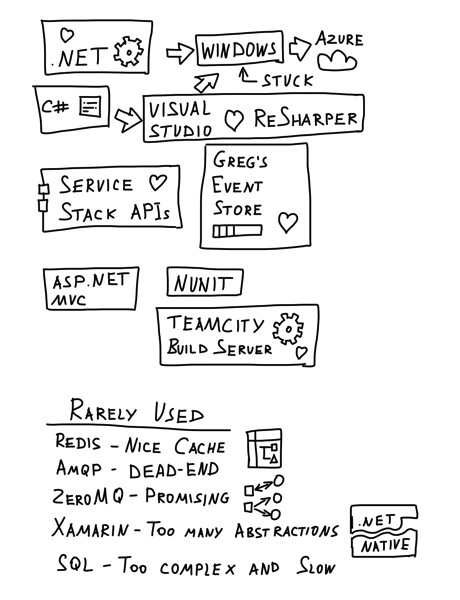 .NET
WINDOWS
AZURE
STUCK
C#
VISUAL
STUDIO
ReSHARPER
SERVICE
STACK APIs
GREG'S
EVENT
STORE
ASP.NET
MVC
NUNIT
TEAMCITY
BUILD SERVER
RARELY USED
REDIS - NICE CACHE
AMQP - DEAD-END
ZEROMQ - PROMISING
XAMARIN - TOO MANY ABSTRACTIONS
.NET
NATIVE
SQL - TOO COMPLEX AND SLOW